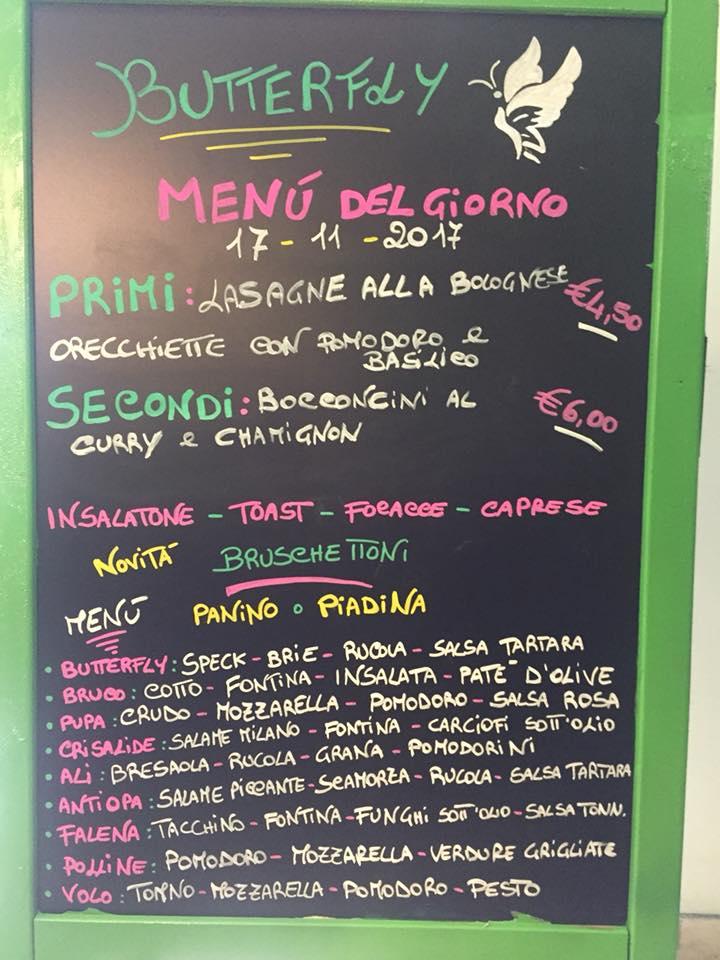 BUTTERFLY
MENÚ DEL GIORNO
17-11-2017
PRIMI: LASAGNE ALLA BOLOGNESE €4,50
ORECCHIETTE CON POMODORO e
BASILICO
SECONDI: BOCCONCINI AL €6,00
CURRY e CHAMIGNON
INSALATONE - TOAST - FOCACCE - CAPRESE
NOVITÀ BRUSCHETTONI
MENÚ PANINO o PIADINA
• BUTTERFLY: SPECK - BRIE - RUCOLA - SALSA TARTARA
• BRUCO: COTTO - FONTINA - INSALATA - PATE' D'OLIVE
• PUPA: CRUDO - MOZZARELLA - POMODORO - SALSA ROSA
• CRISALIDE: SALAME MILANO - FONTINA - CARCIOFI SOTT'OLIO
• ALI: BRESAOLA - RUCOLA - GRANA - POMODORINI
• ANTIOPA: SALAME PICCANTE - SCAMORZA - RUCOLA - SALSA TARTARA
• FALENA: TACCHINO - FONTINA - FUNGHI SOTT'OLIO - SALSA TONN.
• POLLINE: POMODORO - MOZZARELLA - VERDURE GRIGLIATE
• VOLO: TONNO - MOZZARELLA - POMODORO - PESTO